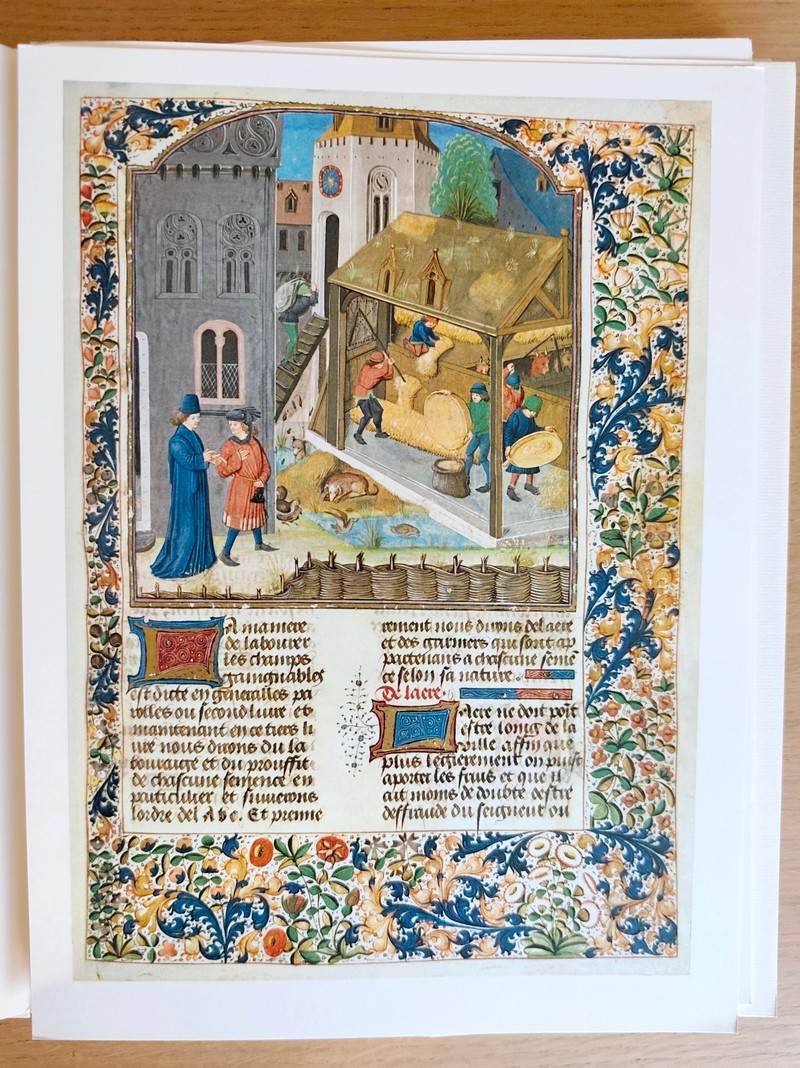 A maniere
de labourer
les champs
gaingnables
est dicte en generalles pa
rolles ou second liure et
maintenant en ce tiers li
ure nous dirons du la
bouraige et du prouffit
de chascune semence en
particulier et suiuerons
lordre del A b c. Et premie
rement nous dirons de laere
et des garniers qui sont ap
partenans a chascune semē
ce selon sa nature
De laere.
Aere ne doit pōit
estre loing de la
ville affin que
plus legierement on puist
aporter les fruis et que il
ait moins de doubte destre
deffraude du seigneur ou